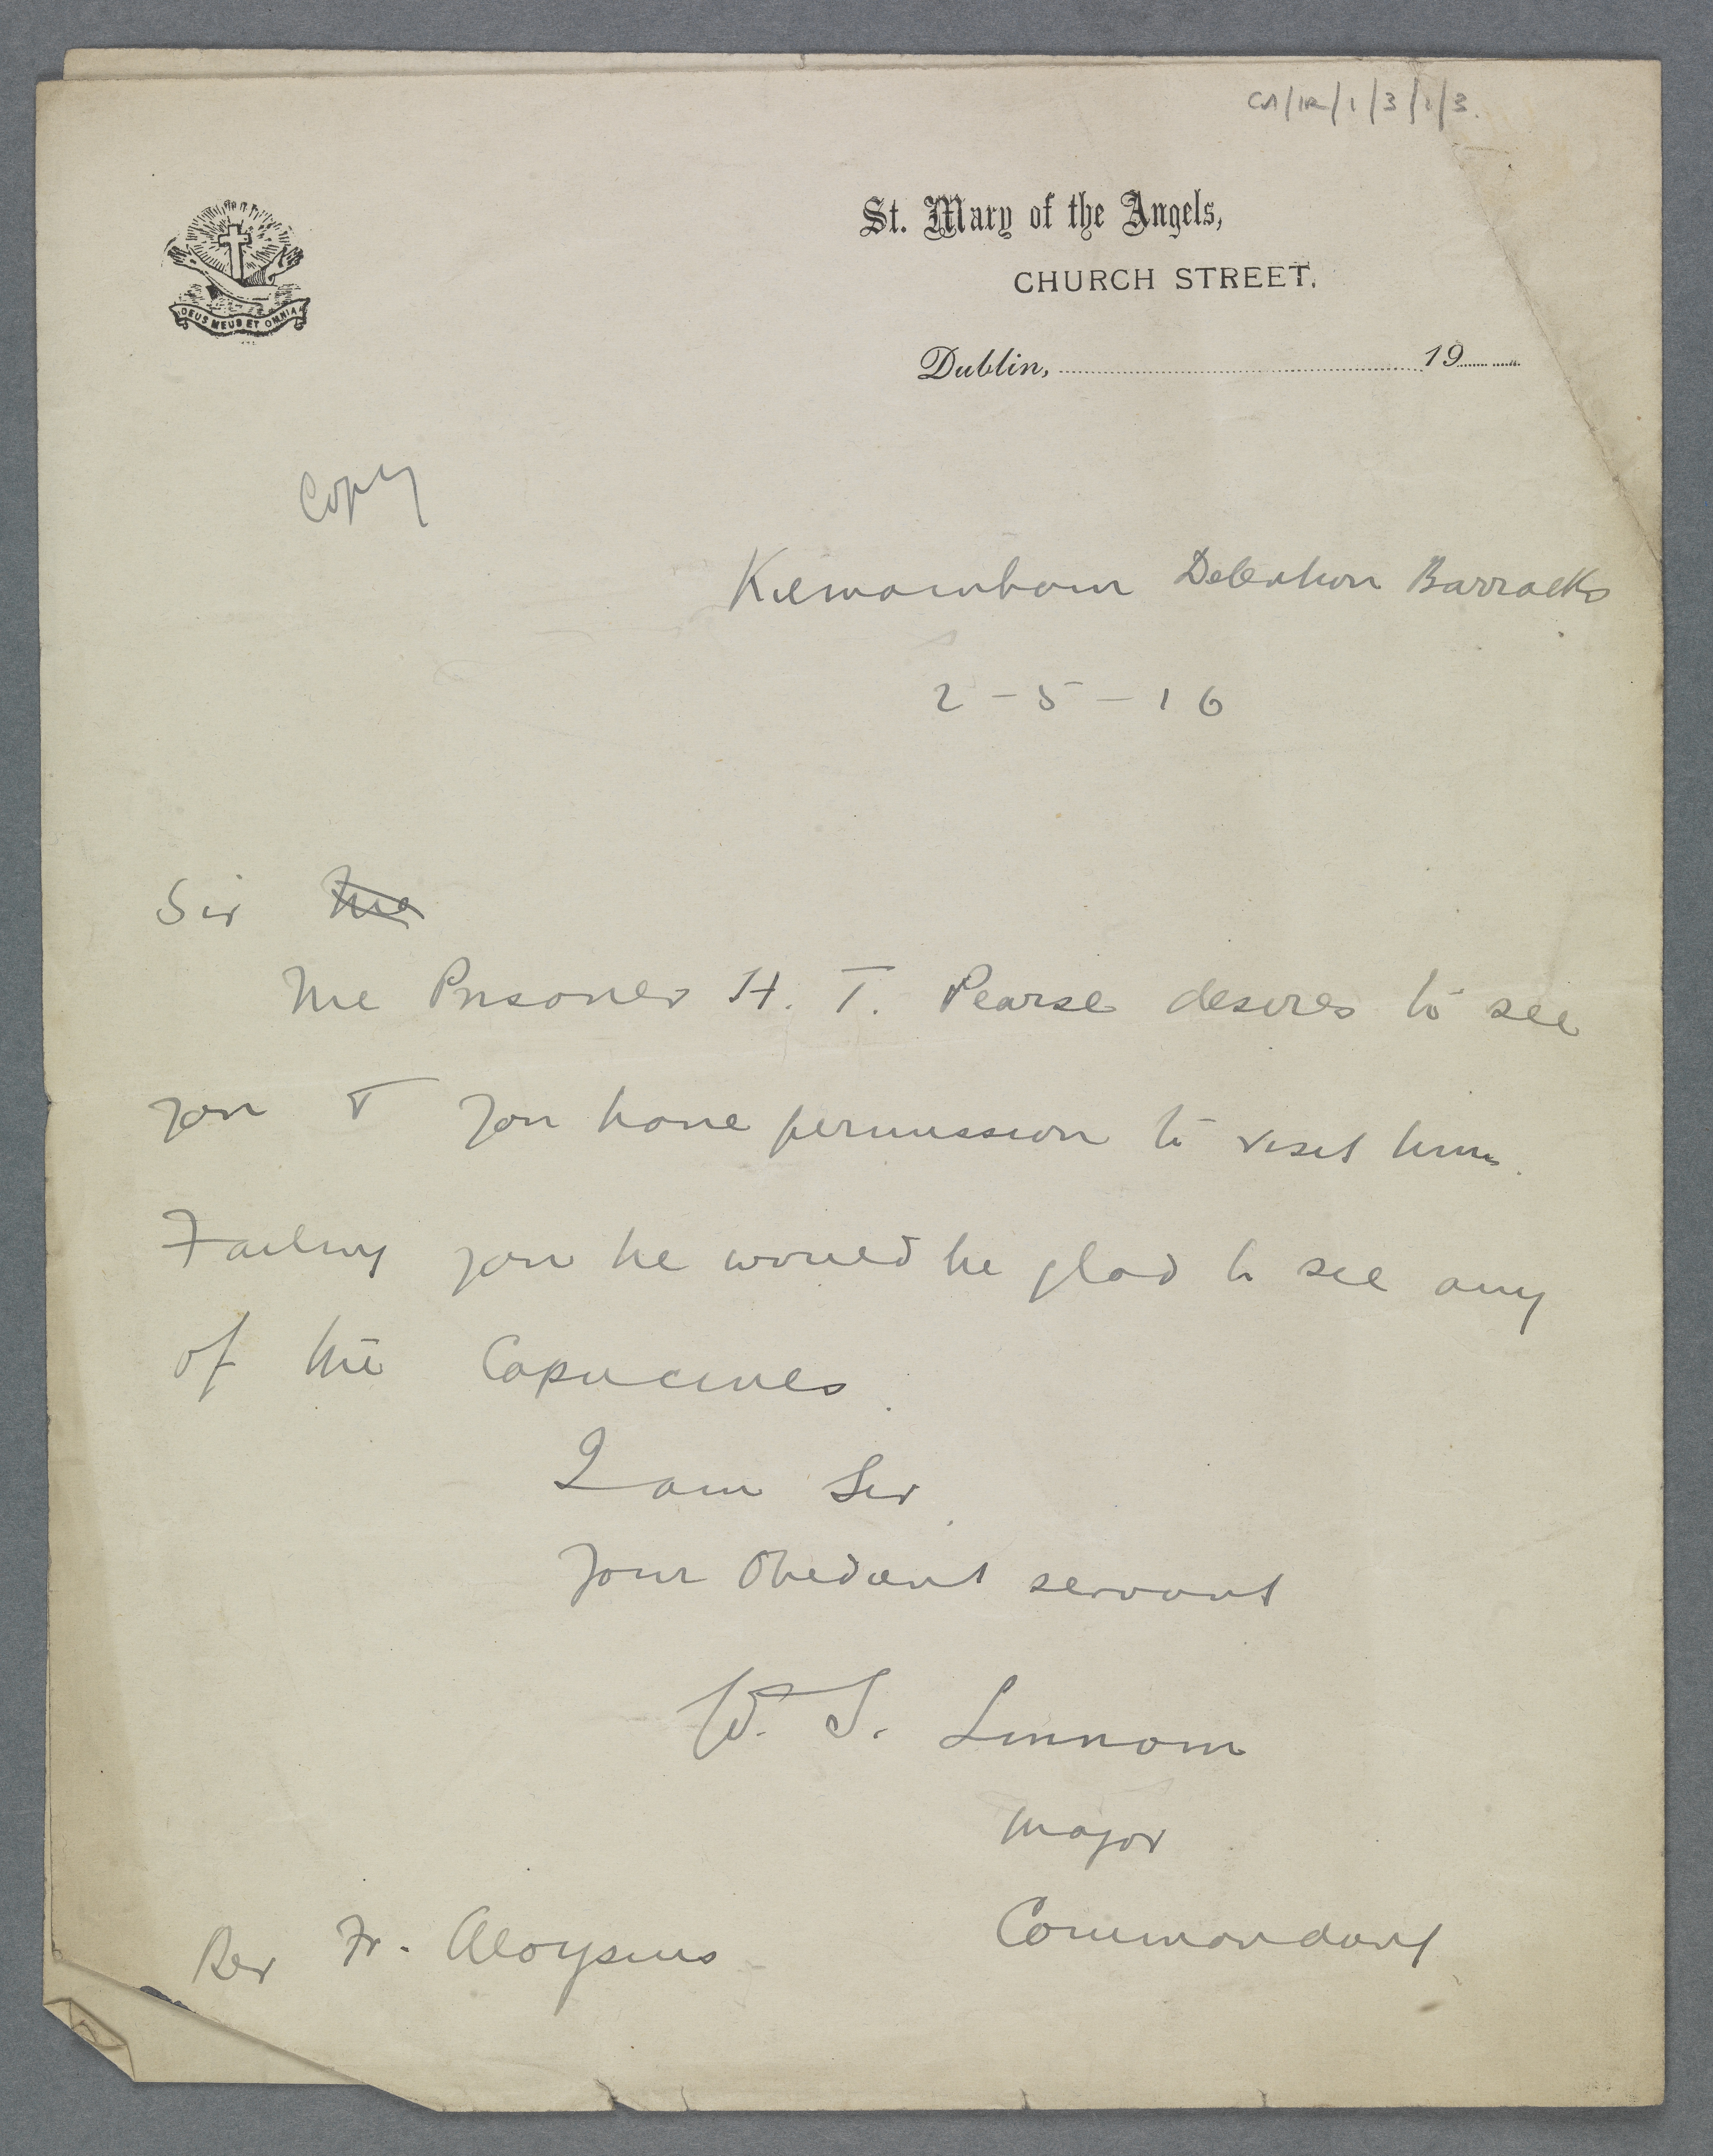 CA/IR/1/3/2/3.
St. Mary of the Angels,
CHURCH STREET.
DEUS MEUS ET OMNIA
Dublin, 19
Copy
Kilmainham Detention Barracks
2 - 5 - 16
Sir The
The Prisoner H. T. Pearse desires to see
you & you have permission to visit him.
Failing you he would be glad to see any
of the Capucines.
I am Sir,
Your Obedient servant
W. S. Lennom
Major
Commandant
Rev Fr. Aloysius